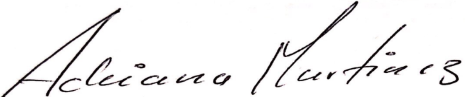 Adriana Martinez